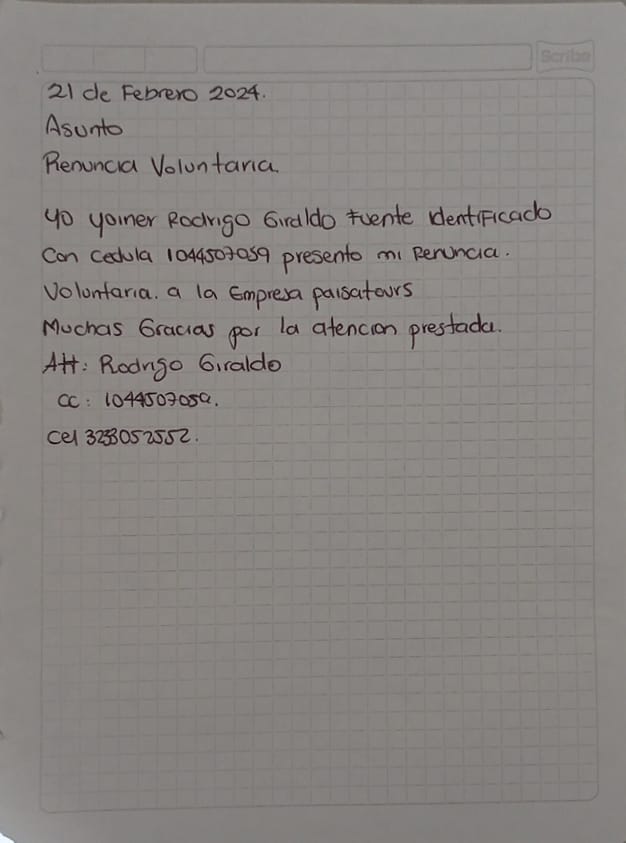 Scribe
21 de Febrero 2024.
Asunto
Renuncia Voluntaria.
Yo yoiner Rodrigo Giraldo Fuente identificado
Con cedula 1044507059 presento mi Renuncia.
Voluntaria. a la Empresa paisatours
Muchas Gracias por la atencion prestada.
Att: Rodrigo Giraldo
CC: 1044507059.
Cel 3233052552.